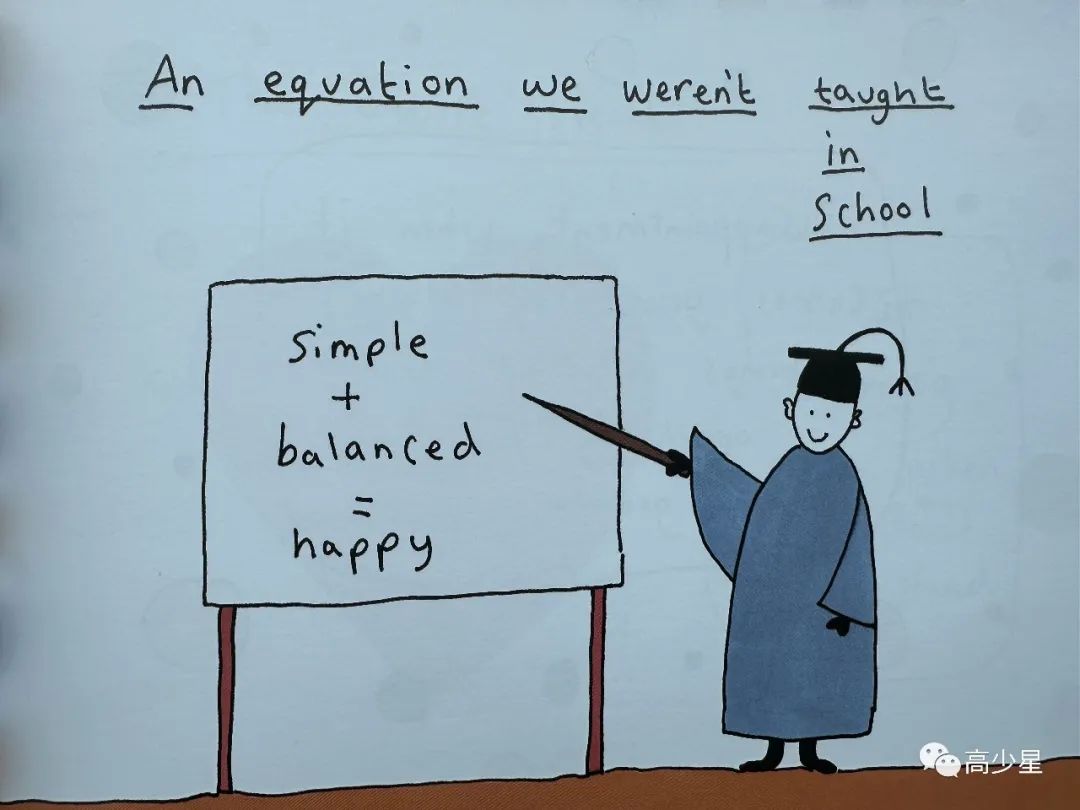 An equation we weren't taught
in
School
simple
+
balanced
=
happy
高少星